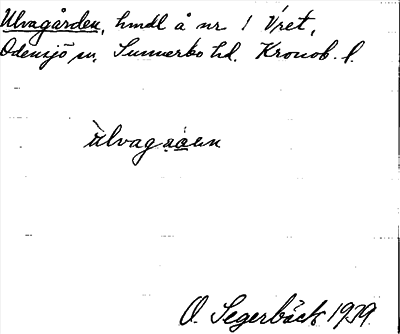 Ulvagården, hmdl å nr 1 Vret,
Odensjö sn, Sunnerbo hd. Kronob. l.
ùlvagɑ̀ːen
O. Segerbäck 1939.